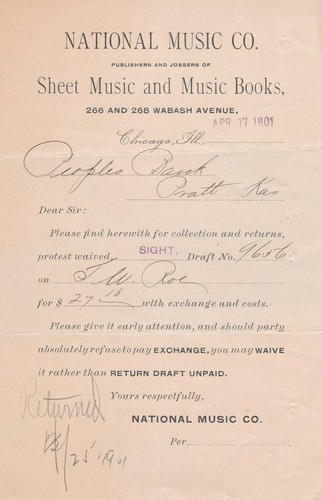 NATIONAL MUSIC CO.
PUBLISHERS AND JOBBERS OF
Sheet Music and Music Books,
266 AND 268 WABASH AVENUE,
APR 17 1901
Chicago, Ill.,
Peoples Bank
Pratt Kas
Dear Sir:
Please find herewith for collection and returns,
protest waived SIGHT. Draft No. 9656
on J. W. Roe
for $ 27 15 with exchange and costs.
Please give it early attention, and should party
absolutely refuse to pay EXCHANGE, you may WAIVE
it rather than RETURN DRAFT UNPAID.
Yours respectfully,
Returned
NATIONAL MUSIC CO.
Per
4/25 1901